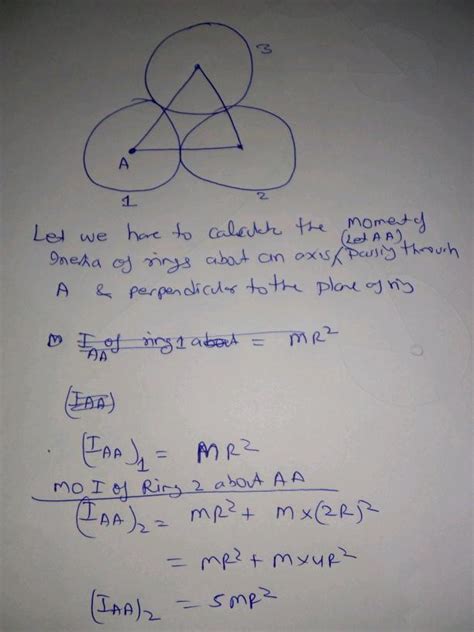 3
A
1
2
Let we have to calculate the moment of
Inertia of rings about an axis (Let AA) passing through
A & perpendicular to the plane of ring
I AA of ring 1 about = MR²
(I AA)
(I AA)₁ = MR²
MO I of Ring 2 about AA
(I AA)₂ = MR² + M×(2R)²
= MR² + M×4R²
(I AA)₂ = 5MR²